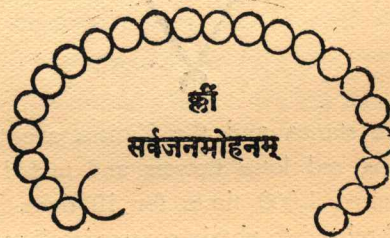 क्लीं
सर्वजनमोहनम्